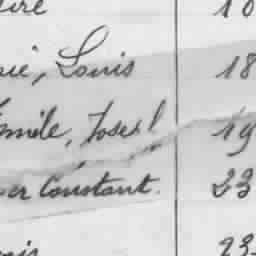 ire 10
sie, Louis 18
Emile, Josep! 19
er Constant. 23
ois 23